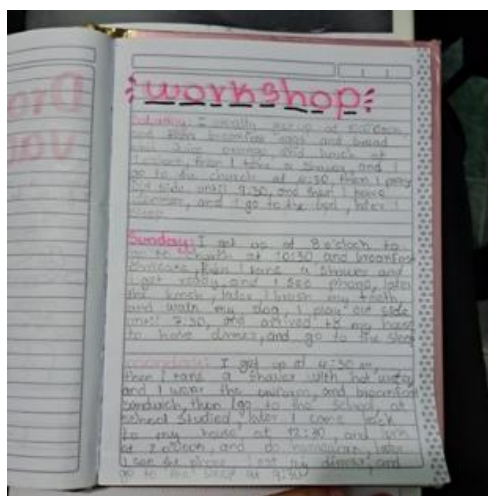 workshop
Saturday: I usually get up at
and then breakfast eggs and bread
and juice orange and lunch at
then I take a shower, and I
go to the church at 4:30, then I play
out side until 9:30, and then I have
dinner, and I go to the bed, later I
sleep
Sunday: I get up at 8 o'clock to
go to church at 10:30 and breakfast
pancake, then I take a shower and
I get ready, and I see phone, later
the lunch, later I brush my teeth,
and walk my dog, I play out side
until 7:30, and arrived to my house
to have dinner, and go to the sleep
I get up at 4:30 am,
then I take a shower with hot water
and I wear the uniform, and breakfast
sandwich, then I go to the school, at
school studied, later I come back
to my house at 12:30, and
at and do homework, later
I see the phone eat my dinner, and
go to the sleep at 9:30